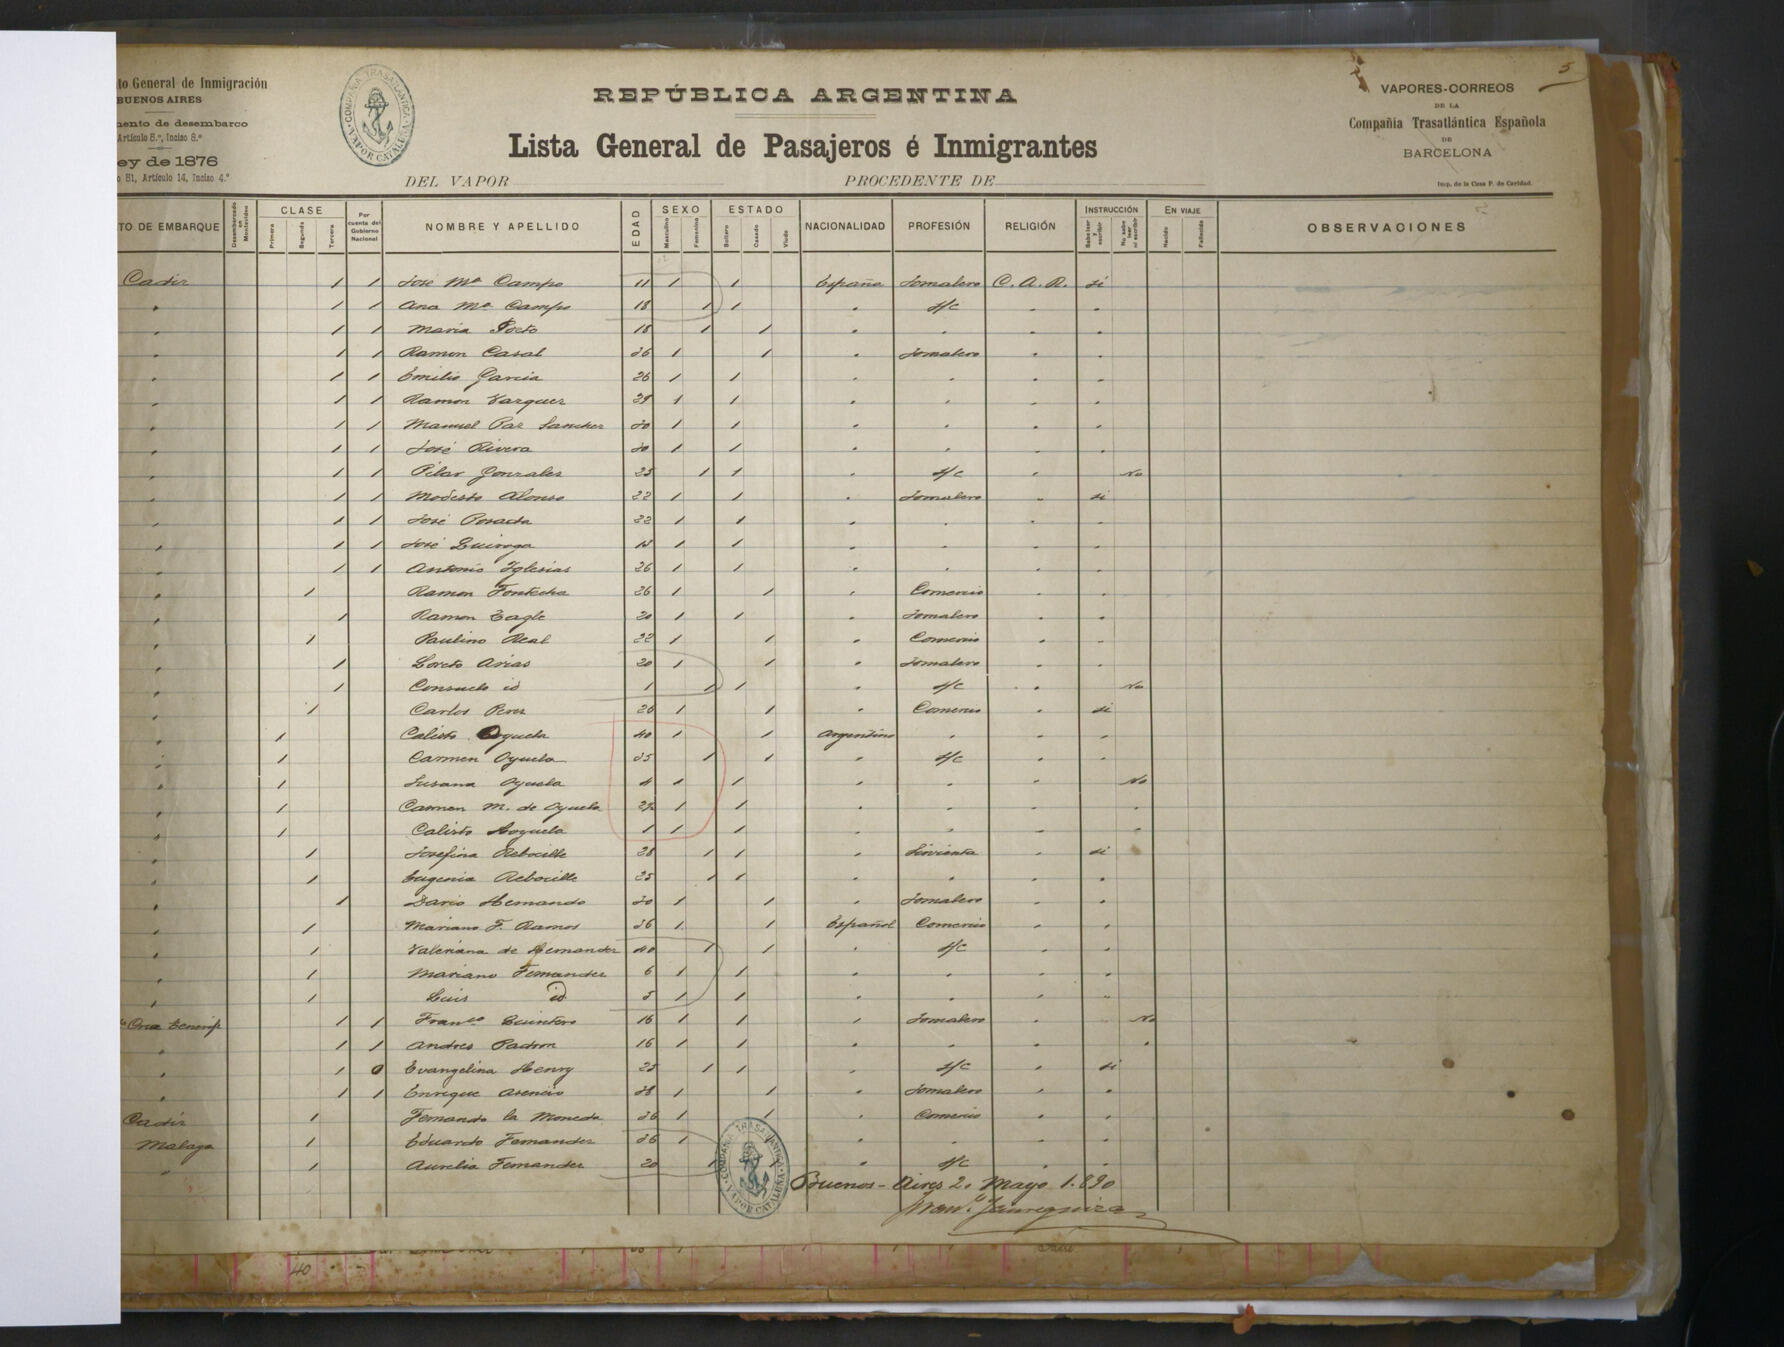 to General de Inmigración
BUENOS AIRES
mento de desembarco
Artículo 8.º, Inciso 8.º
ey de 1876
o 81, Artículo 14, Inciso 4.º
COMPAÑIA TRASATLANTICA
VAPOR CATALUÑA
REPÚBLICA ARGENTINA
Lista General de Pasajeros é Inmigrantes
DEL VAPOR PROCEDENTE DE
5
VAPORES-CORREOS
DE LA
Compañía Trasatlántica Española
DE
BARCELONA
Imp. de la Casa P. de Caridad.
TO DE EMBARQUE Desembarcado en Montevideo CLASE Primera Segunda Tercera Por cuenta del Gobierno Nacional NOMBRE Y APELLIDO EDAD SEXO Masculino Femenino ESTADO Soltero Casado Viudo NACIONALIDAD PROFESIÓN RELIGIÓN INSTRUCCIÓN Sabe leer y escribir No sabe leer ni escribir EN VIAJE Nacido Fallecido OBSERVACIONES
Cadiz / / José Mª Campo 11 / / España Jornalero C. A. R. si
" / / Ana Mª Campo 18 / / " s/c " "
" / / Maria Porto 18 / / " " " "
" / / Ramon Casal 36 / / " Jornalero " "
" / / Emilio Garcia 26 / / " " " "
" / / Ramon Vazquez 29 / / " " " "
" / / Manuel Paz Sanchez 30 / / " " " "
" / / José Rivera 30 / / " " " "
" / / Pilar Gonzales 25 / / " s/c " No
" / / Modesto Alonso 22 / / " Jornalero " si
" / / José Posada 22 / / " " " "
" / / José Quiroga 18 / / " " " "
" / / Antonio Yglesias 26 / / " " " "
" / Ramon Fontecha 26 / / " Comercio " "
" / Ramon Eagle 20 / / " Jornalero " "
" / Paulino Real 22 / / " Comercio " "
" / Loreto Arias 20 / / " Jornalero " "
" / Consuelo id 1 / / " s/c " No
" / Carlos Perez 26 / / " Comercio " si
" / Calisto Oyuela 40 / / Argentino " " "
" / Carmen Oyuela 35 / / " s/c " "
" / Susana Oyuela 4 / / " " " No
" / Carmen M. de Oyuela 27 / / " " " "
" / Calisto Oyuela 1 / / " " " "
" / Josefina Rebocille 28 / / " Sirvienta " si
" / Eugenia Rebocille 25 / / " " " "
" / Dario Hernando 30 / / " Jornalero " "
" / Mariano F. Ramos 36 / / Español Comercio " "
" / Valeriana de Hernandez 40 / / " s/c " "
" / Mariano Fernandez 6 / / " " " "
" / Luis id 5 / / " " " "
Cruz Tenerife / / Franco Quintero 16 / / " Jornalero " No
" / / Andres Padron 16 / / " " " "
" / Evangelina Henry 25 / / " s/c " si
" / / Enrique Asencio 38 / / " Jornalero " "
Cadiz / Fernando la Moneda 36 / / " Comercio " "
Malaga / Eduardo Fernandez 36 / / " " " "
" / Aurelia Fernandez 20 / / " s/c " "
COMPAÑIA TRASATLANTICA
VAPOR CATALUÑA
Buenos-Aires 2. Mayo 1.890
Manl. Jaureguizar
40